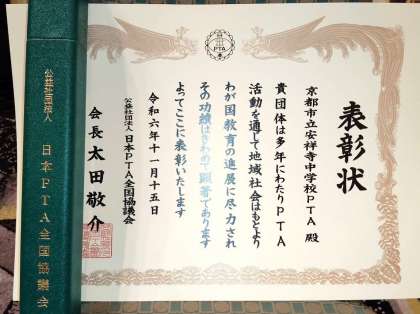 PTA
表彰状
京都市立安祥寺中学校PTA 殿
貴団体は多年にわたりPTA
活動を通して地域社会はもとより
わが国教育の進展に尽力され
その功績はきわめて顕著であります
よってここに表彰いたします
令和六年十一月十五日
公益社団法人 日本PTA全国協議会
会長 太田敬介
公益社団法人 日本PTA全国協議会